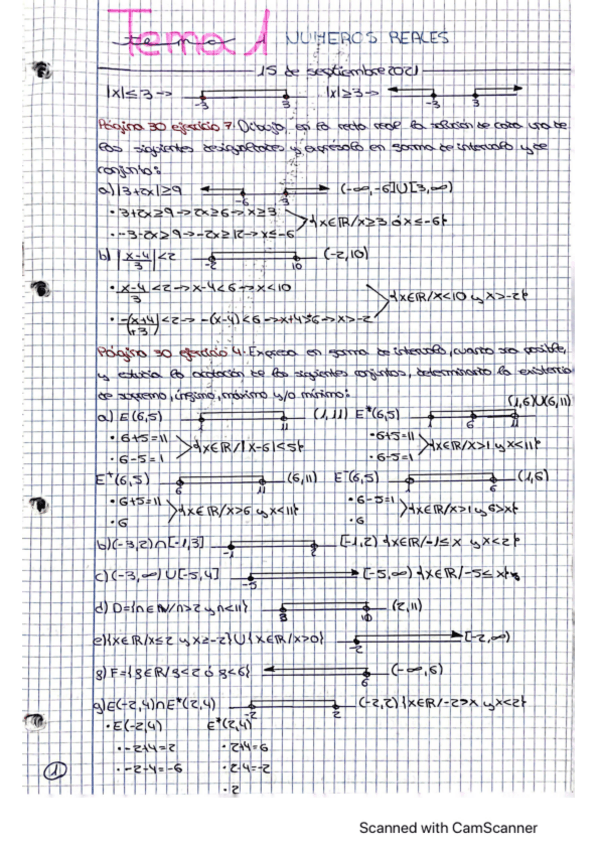 Tema 1 NUMEROS REALES
15 de septiembre 2021
|x|≤3→ -3 3 |x|≥3→ -3 3
Página 30 ejercicio 7. Dibuja en la recta real la solución de cada una de
las siguientes desigualdades y exprésala en forma de intervalo y de
conjunto:
a) |3+2x|≥9 -6 3 (-∞,-6]U[3,∞)
· 3+2x≥9→2x≥6→x≥3
{x∈ℝ/x≥3 ó x≤-6}
· -3-2x≥9→-2x≥12→x≤-6
b) |x-4/3|<2 -2 10 (-2,10)
· x-4/3<2→x-4<6→x<10
{x∈ℝ/x<10 y x>-2}
<2→ -(x-4)<6→ x>-2
Página 30 ejercicio 4. Expresa en forma de intervalo, cuando sea posible,
y estudia la acotación de los siguientes conjuntos, determinando la existencia
de supremo, ínfimo, máximo y/o mínimo:
a) E(6,5) 1 11 (1,11) E*(6,5) 1 6 11 (1,6)U(6,11)
· 6+5=11 {x∈ℝ/|x-6|<5} · 6+5=11 {x∈ℝ/x>1 y x<11}
· 6-5=1 · 6-5=1
E⁺(6,5) 6 11 (6,11) E⁻(6,5) 1 6 (1,6)
· 6+5=11 {x∈ℝ/x>6 y x<11} · 6-5=1 {x∈ℝ/x>1 y 6>x}
· 6 · 6
b) (-3,2)∩[-1,3] -1 2 [-1,2) {x∈ℝ/-1≤x y x<2}
c) (-3,∞)U[-5,4] -5 [-5,∞) {x∈ℝ/-5≤x}
d) D={n∈ℕ/n>2 y n<11} 3 10 (2,11)
e) {x∈ℝ/x≤2 y x≥-2}U{x∈ℝ/x>0} -2 [-2,∞)
6 (-∞,6)
g) E(-2,4)∩E*(2,4) -2 2 (-2,2) {x∈ℝ/-2>x y x<2}
· E(-2,4) E*(2,4)
· -2+4=2 · 2+4=6
· -2-4=-6 · 2-4=-2
· 2
1
Scanned with CamScanner